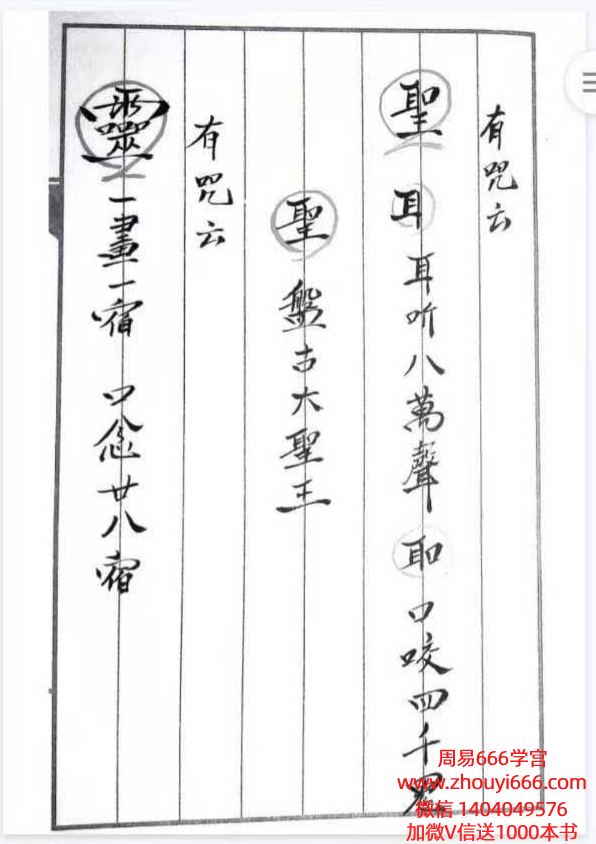 有咒云
聖 耳 耳听八萬聲 耶 口咬四千
聖 盤古大聖王
有咒云
靈 一畫一宿 口念廿八宿
周易666学宫
www.zhouyi666.com
微信 1404049576
加微V信送1000本书